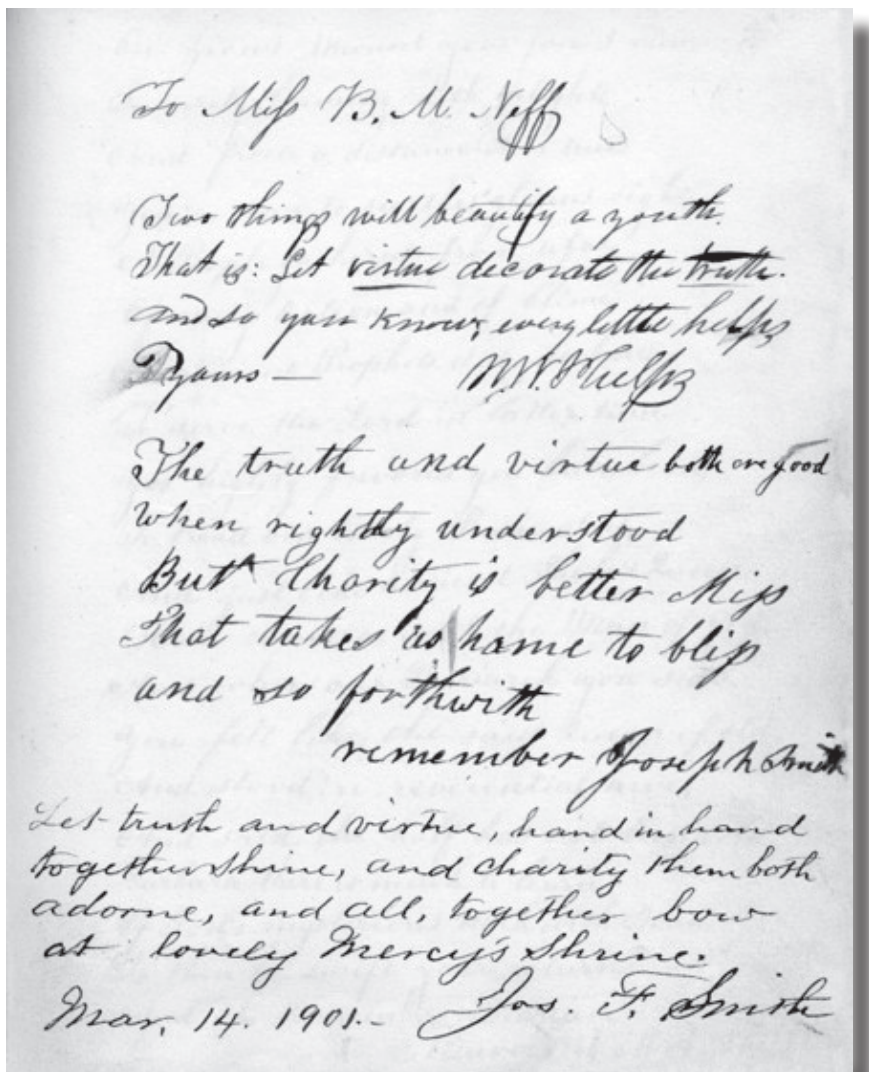 To Miss B. M. Neff
Two things will beautify a youth.
That is: Let virtue decorate the truth.
and so you know, every little helps
yours — W. W. Phelps
The truth and virtue both are good
When rightly understood
But Charity is better Miss
That takes us home to bliss
and so forthwith
remember Joseph Smith
Let truth and virtue, hand in hand
together shine, and charity them both
adorne, and all, together bow
at lovely Mercy's Shrine.
Mar. 14. 1901.- Jos. F. Smith